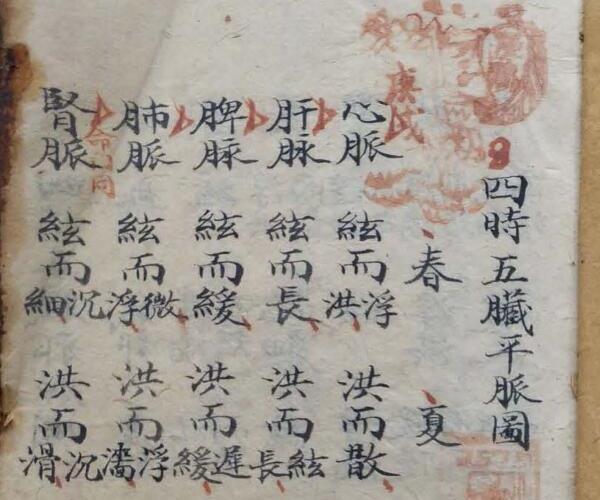 四時五臟平脈圖
春 夏
心脈 絃而浮洪 洪而散
肝脉 絃而長 洪而絃長
脾脉 絃而緩 洪而遲緩
肺脈 絃而微浮 洪而浮濇
腎脈 絃而沉細 洪而沉滑